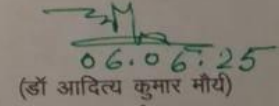 06.06.25
(डॉ आदित्य कुमार मौर्य)